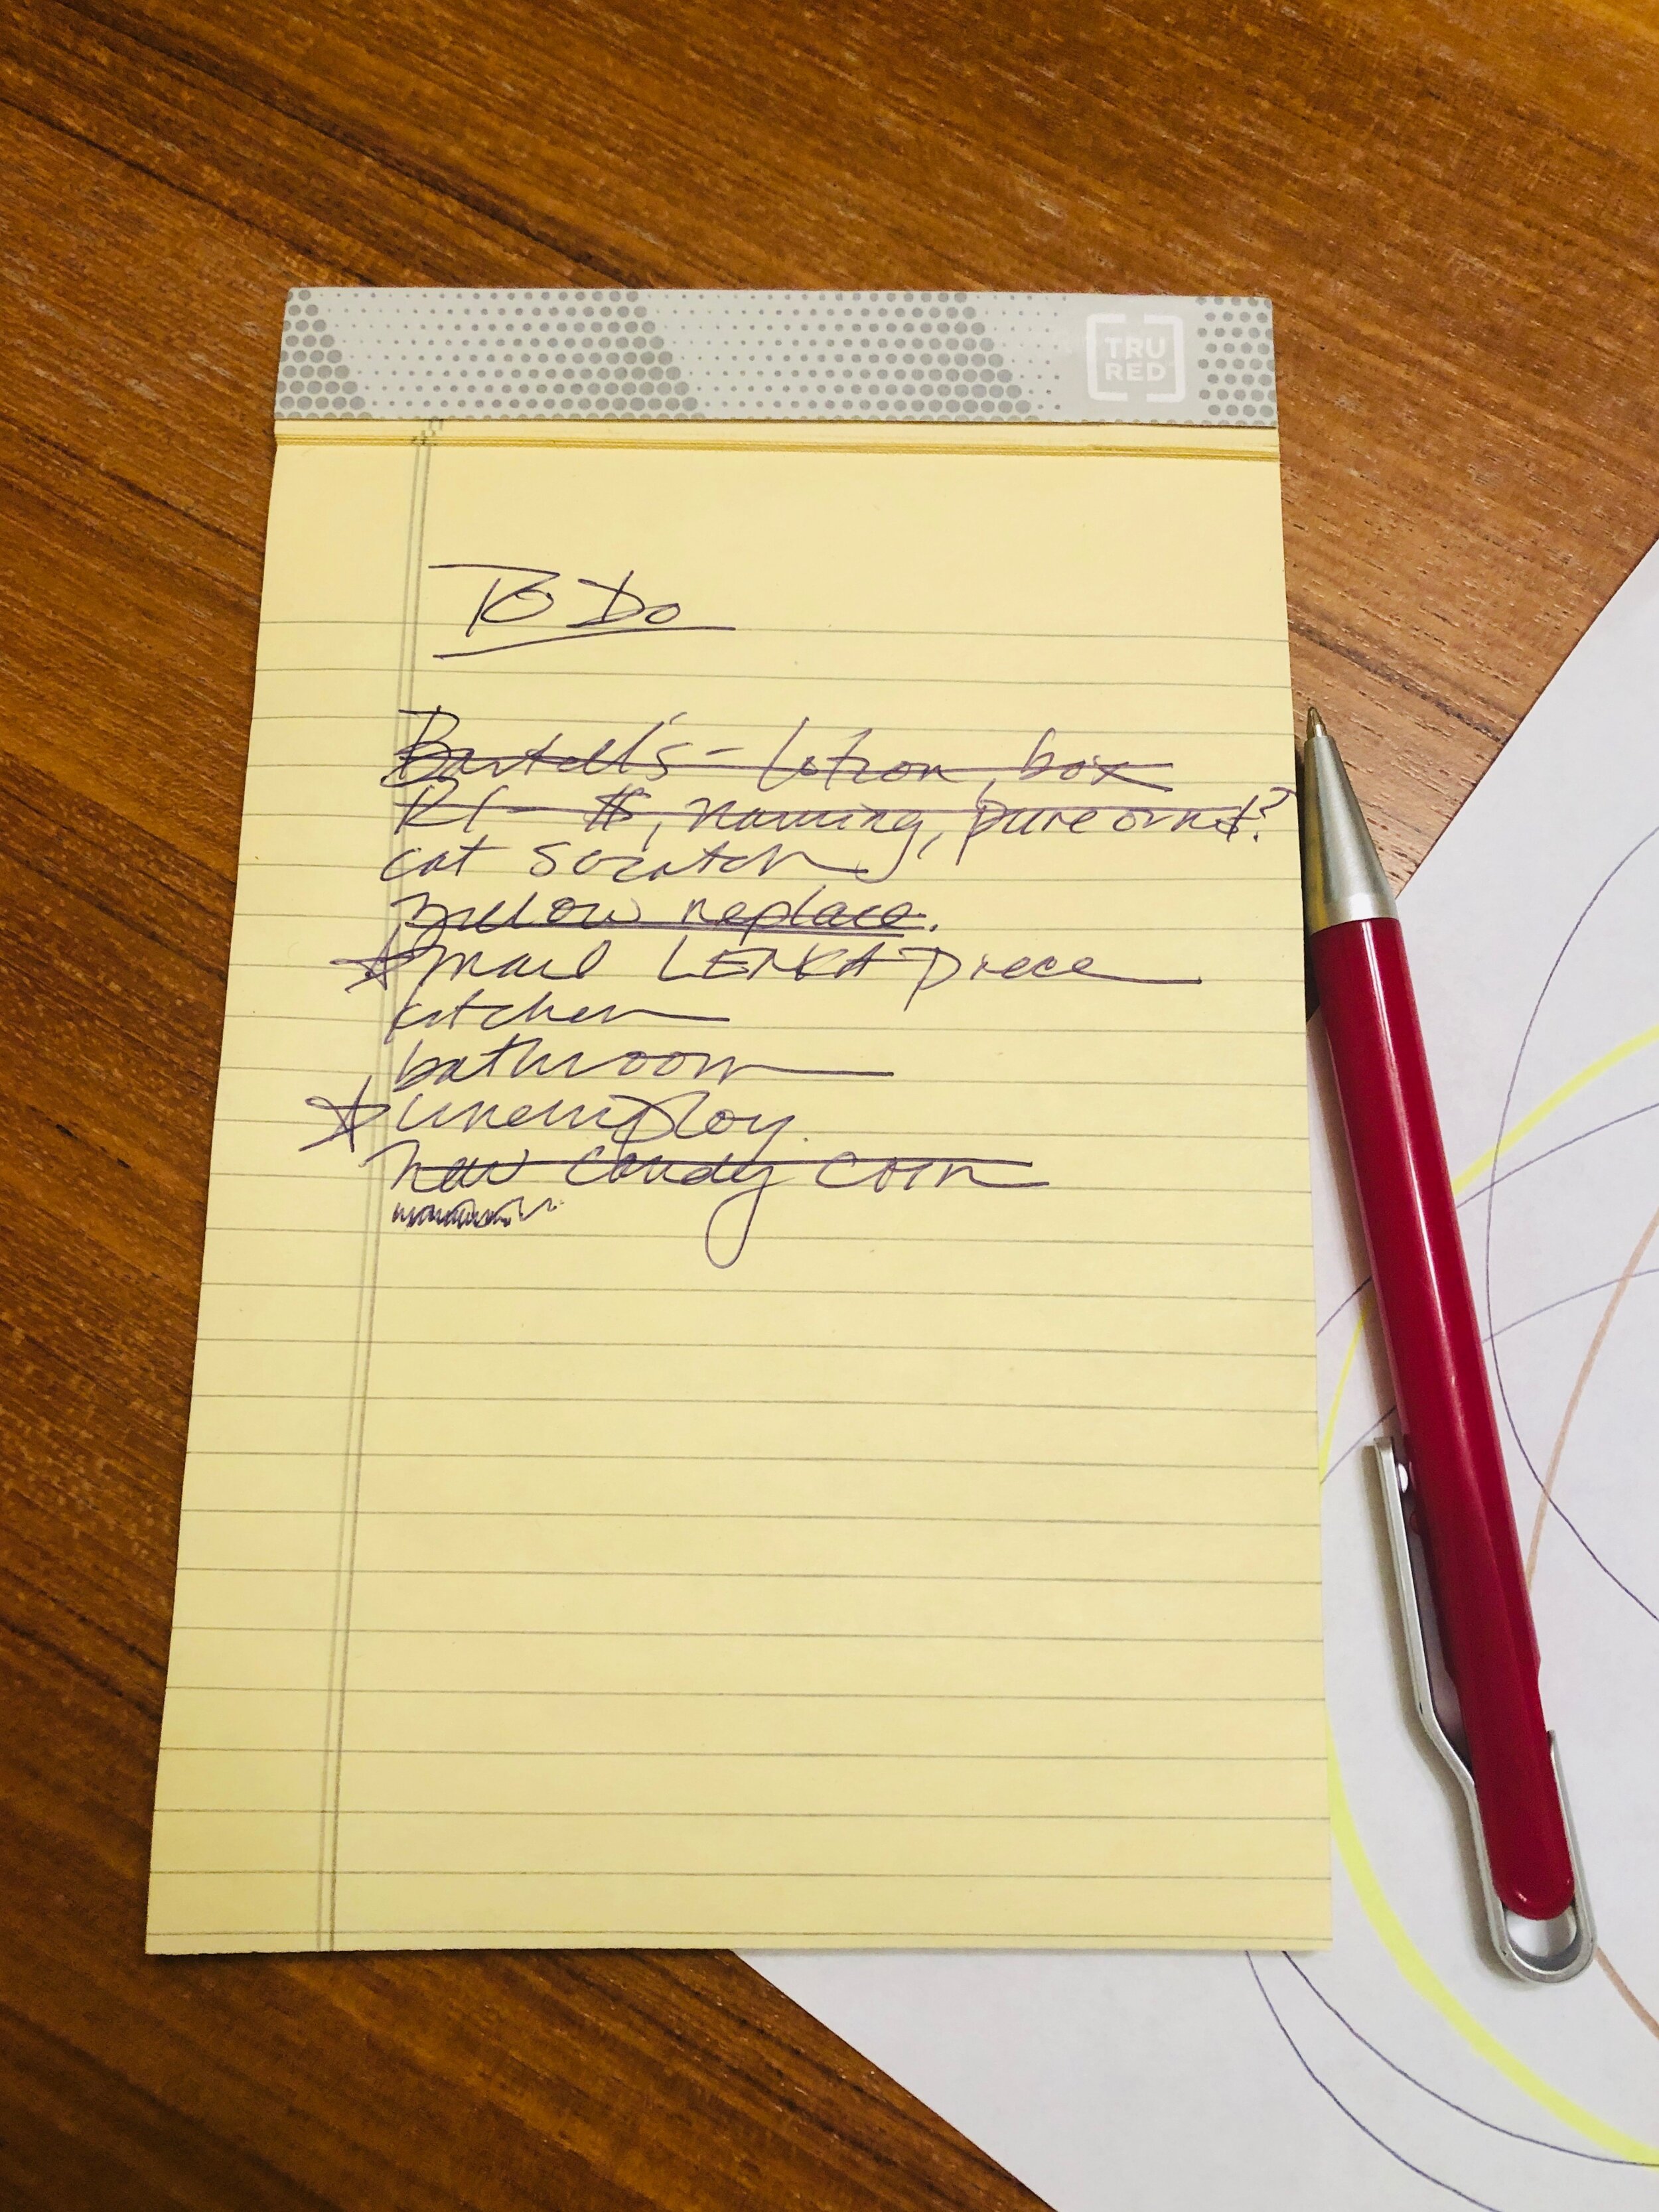 TRU
RED
To Do
Bartell's - lotion, box
$, naming, pure
cat scratch
replace.
mail piece
kitchen
bathroom
unemploy.
new candy corn